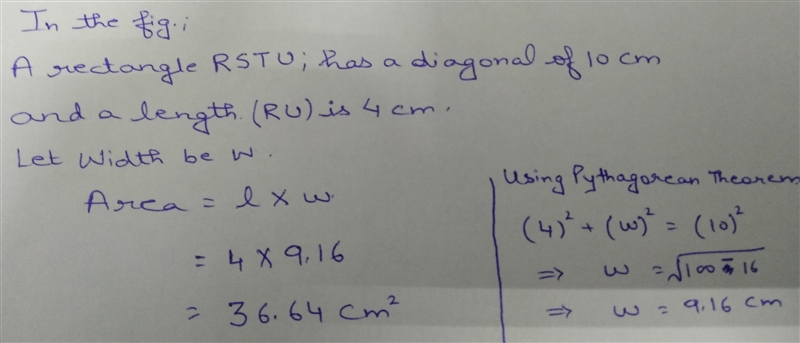 In the fig.;
A rectangle RSTU; has a diagonal of 10 cm
and a length (RU) is 4 cm.
Let Width be W.
Area = l × w
= 4 × 9.16
= 36.64 cm²
Using Pythagorean Theorem
(4)² + (w)² = (10)²
⇒ w = √100 - 16
⇒ w = 9.16 cm